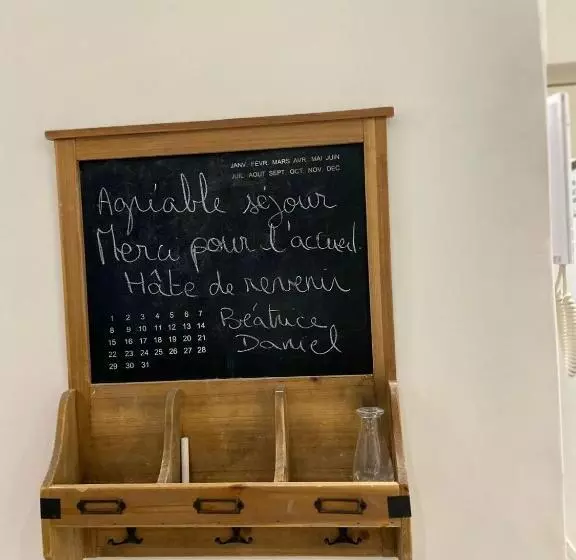 JANV. FEVR. MARS AVR. MAI JUIN
JUIL. AOUT SEPT. OCT. NOV. DEC
Agréable séjour
Merci pour l'accueil
Hâte de revenir
1 2 3 4 5 6 7
8 9 10 11 12 13 14
15 16 17 18 19 20 21
22 23 24 25 26 27 28
29 30 31
Béatrice
Daniel